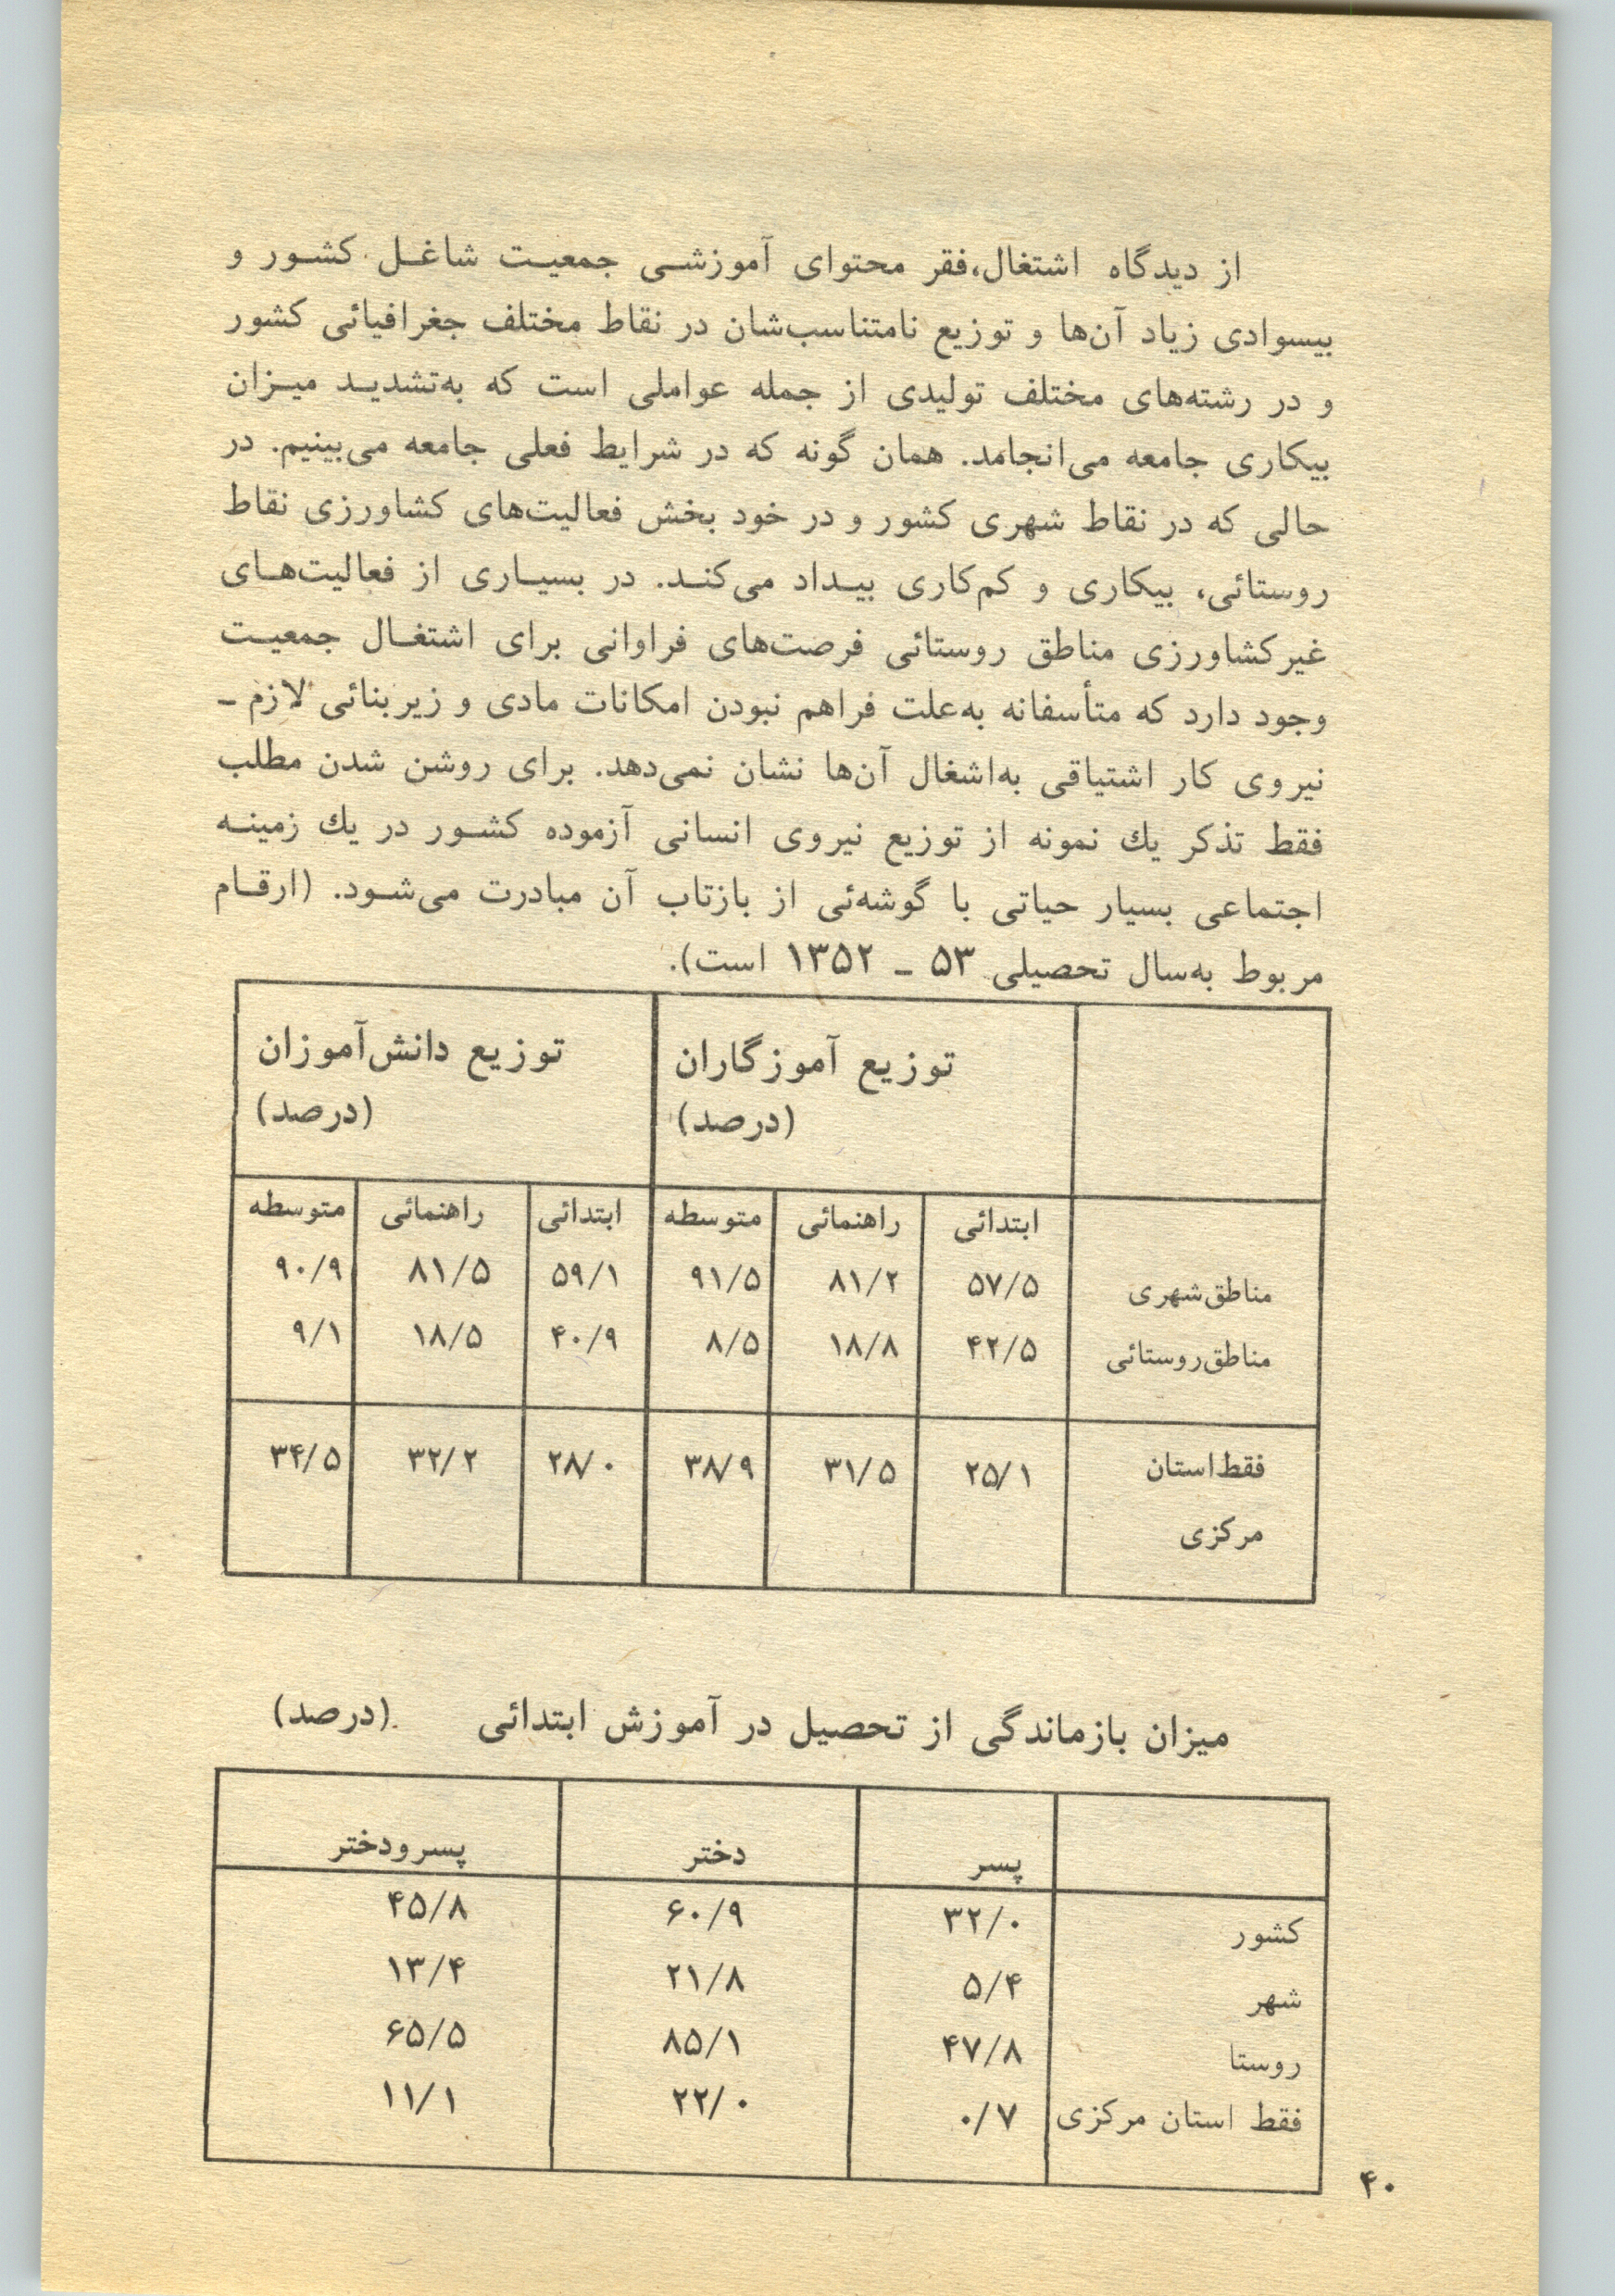 از دیدگاه اشتغال،فقر محتوای آموزشی جمعیت شاغل کشور و
بیسوادی زیاد آن‌ها و توزیع نامتناسب‌شان در نقاط مختلف جغرافیائی کشور
و در رشته‌های مختلف تولیدی از جمله عواملی است که به‌تشدید میزان
بیکاری جامعه می‌انجامد. همان گونه که در شرایط فعلی جامعه می‌بینیم. در
حالی که در نقاط شهری کشور و در خود بخش فعالیت‌های کشاورزی نقاط
روستائی، بیکاری و کم‌کاری بیداد می‌کند. در بسیاری از فعالیت‌های
غیرکشاورزی مناطق روستائی فرصت‌های فراوانی برای اشتغال جمعیت
وجود دارد که متأسفانه به‌علت فراهم نبودن امکانات مادی و زیربنائی لازم ـ
نیروی کار اشتیاقی به‌اشغال آن‌ها نشان نمی‌دهد. برای روشن شدن مطلب
فقط تذکر یك نمونه از توزیع نیروی انسانی آزموده کشور در یك زمینه
اجتماعی بسیار حیاتی با گوشه‌ئی از بازتاب آن مبادرت می‌شود. (ارقام
مربوط به‌سال تحصیلی ۵۳ ـ ۱۳۵۲ است).
توزیع آموزگاران توزیع دانش‌آموزان
(درصد) (درصد)
ابتدائی راهنمائی متوسطه ابتدائی راهنمائی متوسطه
مناطق‌شهری ۵۷/۵ ۸۱/۲ ۹۱/۵ ۵۹/۱ ۸۱/۵ ۹۰/۹
مناطق‌روستائی ۴۲/۵ ۱۸/۸ ۸/۵ ۴۰/۹ ۱۸/۵ ۹/۱
فقط‌استان ۲۵/۱ ۳۱/۵ ۳۸/۹ ۲۸/۰ ۳۲/۲ ۳۴/۵
مرکزی
میزان بازماندگی از تحصیل در آموزش ابتدائی (درصد)
پسر دختر پسرودختر
کشور ۳۲/۰ ۶۰/۹ ۴۵/۸
شهر ۵/۴ ۲۱/۸ ۱۳/۴
روستا ۴۷/۸ ۸۵/۱ ۶۵/۵
فقط استان مرکزی ۰/۷ ۲۲/۰ ۱۱/۱
۴۰